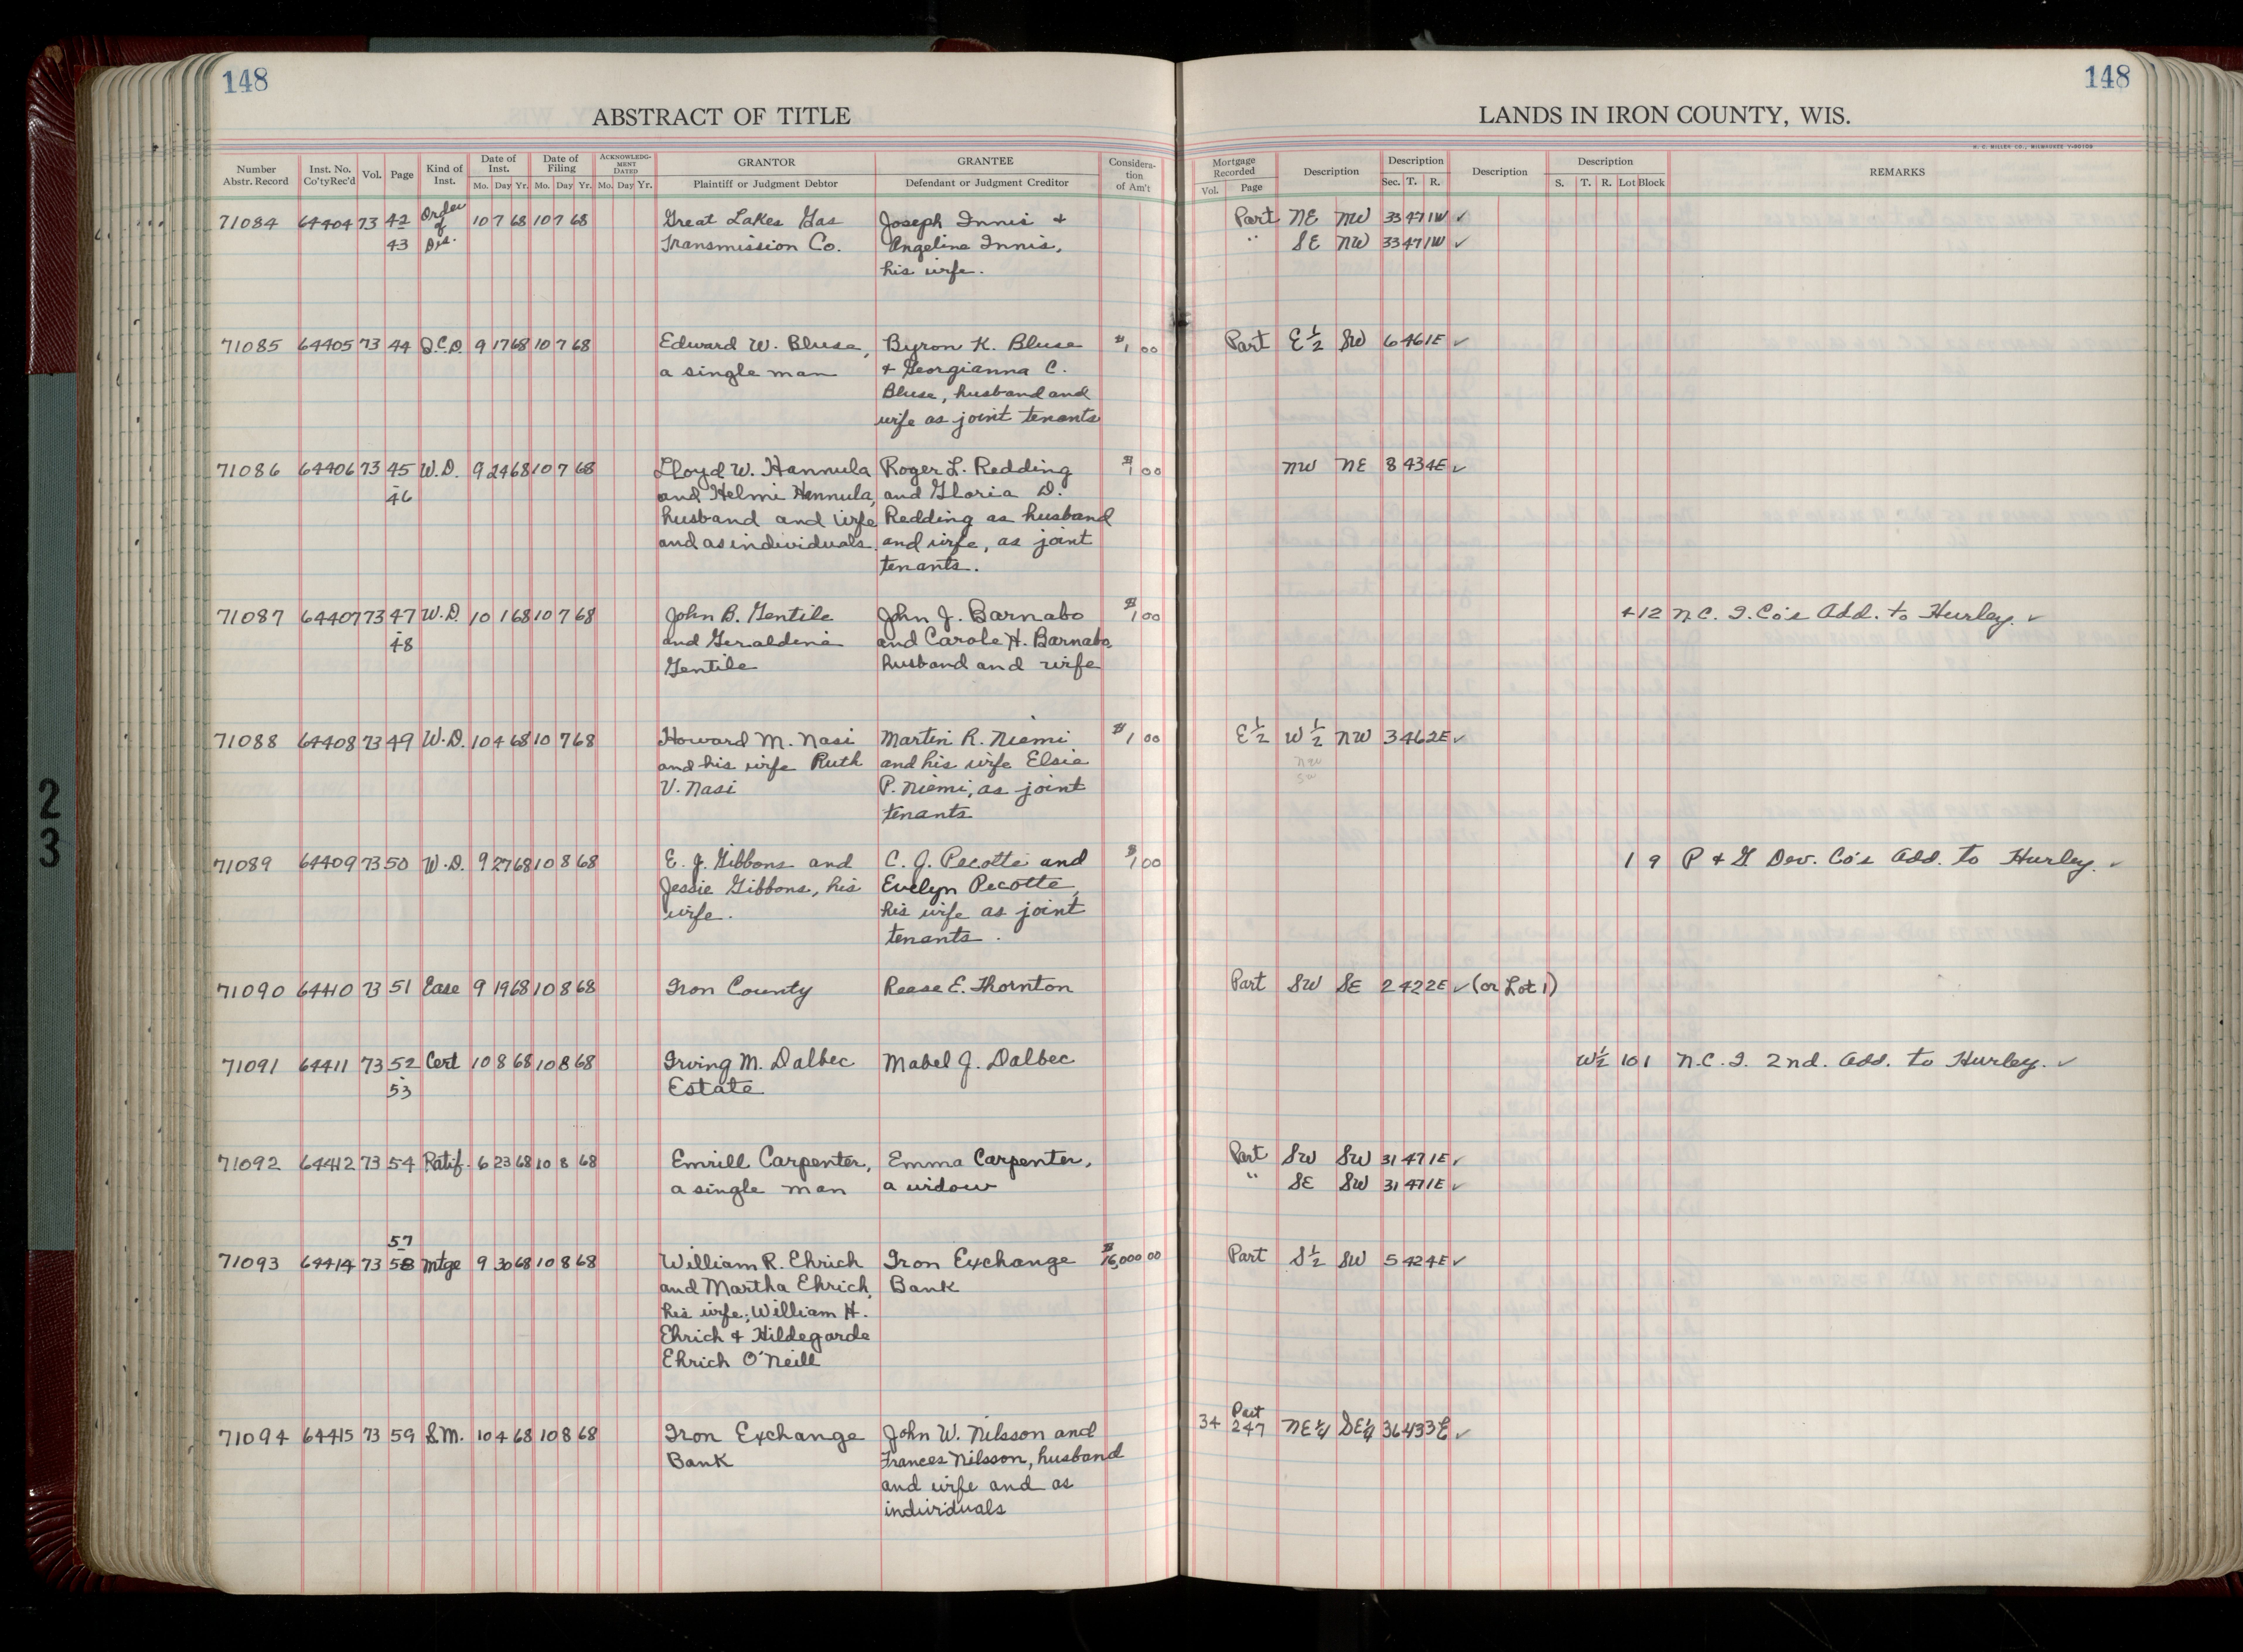 148
148
ABSTRACT OF TITLE
LANDS IN IRON COUNTY, WIS.
H. C. MILLER CO., MILWAUKEE
Number Abstr. Record Inst. No. Co'ty Rec'd Vol. Page Kind of Inst. Date of Inst. Mo. Day Yr. Date of Filing Mo. Day Yr. ACKNOWLEDGMENT DATED Mo. Day Yr. GRANTOR Plaintiff or Judgment Debtor GRANTEE Defendant or Judgment Creditor Consideration of Am't
Mortgage Recorded Vol. Page Description Description Sec. T. R. Description Description S. T. R. Lot Block REMARKS
71084 64404 73 42 Order 10 7 68 10 7 68 Great Lakes Gas Joseph Innis + Part NE NW 33 47 1W ✓
43 of Dis. Transmission Co. Angeline Innis, " SE NW 33 47 1W ✓
his wife.
71085 64405 73 44 Q.C.D. 9 17 68 10 7 68 Edward W. Bluse, Byron K. Bluse $1 00 Part E½ SW 6 46 1E ✓
a single man + Georgianna C.
Bluse, husband and
wife as joint tenants
71086 64406 73 45 W.D. 9 24 68 10 7 68 Lloyd W. Hannula Roger L. Redding $1 00 NW NE 8 43 4E ✓
46 and Helmi Hannula, and Gloria D.
husband and wife Redding as husband
and as individuals. and wife, as joint
tenants.
71087 64407 73 47 W.D. 10 1 68 10 7 68 John B. Gentile John J. Barnabo $1 00 4 12 N.C.I. Co's Add. to Hurley. ✓
48 and Geraldine and Carole H. Barnabo,
Gentile husband and wife
71088 64408 73 49 W.D. 10 4 68 10 7 68 Howard M. Nasi Martin R. Niemi $1 00 E½ W½ NW 3 46 2E ✓
and his wife Ruth and his wife Elsie NW
V. Nasi P. Niemi, as joint SW
tenants
23
71089 64409 73 50 W.D. 9 27 68 10 8 68 E. J. Gibbons and C. J. Pecotte and $1 00 1 9 P + G Dev. Co's Add. to Hurley. ✓
Jessie Gibbons, his Evelyn Pecotte,
wife. his wife as joint
tenants.
71090 64410 73 51 Ease 9 19 68 10 8 68 Iron County Reese E. Thornton Part SW SE 2 42 2E ✓ (or Lot 1)
71091 64411 73 52 Cert 10 8 68 10 8 68 Irving M. Dalbec Mabel J. Dalbec W½ 10 1 N.C.I. 2nd. Add. to Hurley. ✓
53 Estate
71092 64412 73 54 Ratif. 6 23 68 10 8 68 Emrill Carpenter, Emma Carpenter, Part SW SW 31 47 1E ✓
a single man a widow " SE SW 31 47 1E ✓
57
71093 64414 73 58 Mtge 9 30 68 10 8 68 William R. Ehrich Iron Exchange $16,000 00 Part S½ SW 5 42 4E ✓
and Martha Ehrich, Bank
his wife; William H.
Ehrich + Hildegarde
Ehrich O'Neill
Part
71094 64415 73 59 S.M. 10 4 68 10 8 68 Iron Exchange John W. Nilsson and 34 247 NE¼ SE¼ 36 43 3E ✓
Bank Frances Nilsson, husband
and wife and as
individuals